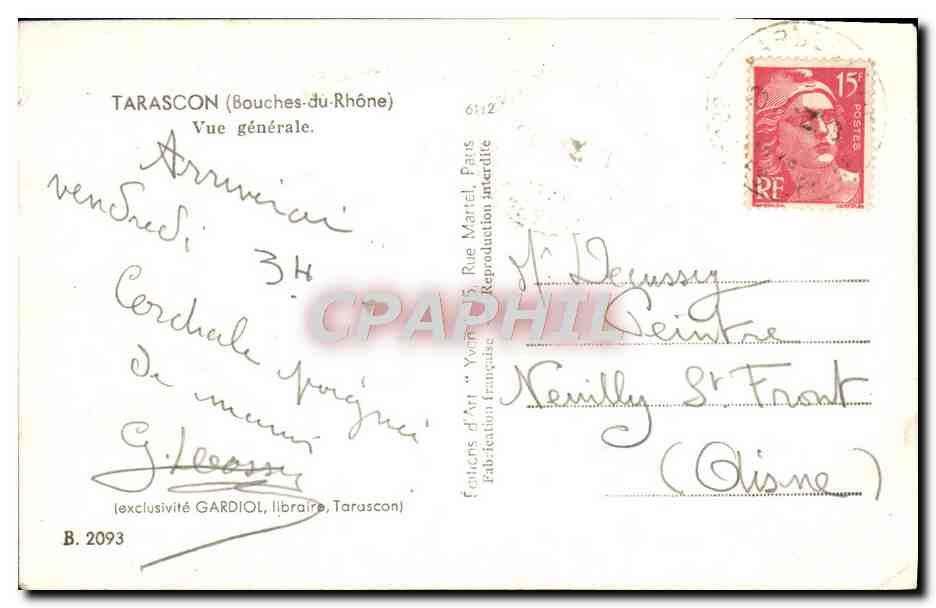 TARASCON (Bouches-du-Rhône)
Vue générale.
Arriverai
vendredi
3H
Cordiale poignée
de mains
(exclusivité GARDIOL, libraire, Tarascon)
B. 2093
6112
Editions d'Art "Yvon" 15, Rue Martel, Paris
Fabrication française - Reproduction interdite
CPAPHIL
15F
POSTES
RF
Mr
Peintre
Neuilly St Front
(Aisne)